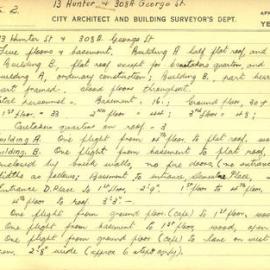 13 Hunter & 308A George St.
S 2.
CITY ARCHITECT AND BUILDING SURVEYOR'S DEPT.
YE
13 Hunter St & 308A George St
Five floors & basement. Building A half flat roof and
Building B, flat roof except for caretakers quarters and
Building A, ordinary construction; Building B, part
part framed. Wood floors throughout.
Total personnel - Basement, 16; Ground floor, 30 +
1st floor = 33 2nd floor = 44; 3rd floor = 48;
Caretakers quarters on roof = 3
Building A. One flight from 4th floor to flat roof,
Building B. One flight from basement to flat roof,
enclosed by brick walls, no fire doors (no entrance
widths as follows; Basement to entrance Place,
Entrance D. Place to 1st floor, 2'-9" 1st floor to 4th floor,
4th floor to roof 3'-3"
One flight from ground floor (cafe) to 1st floor, wood
One flight from basement to 1st floor, wood, open
One flight from ground floor (cafe) to lane on west
2'-8" wide (approx 6 steps only).